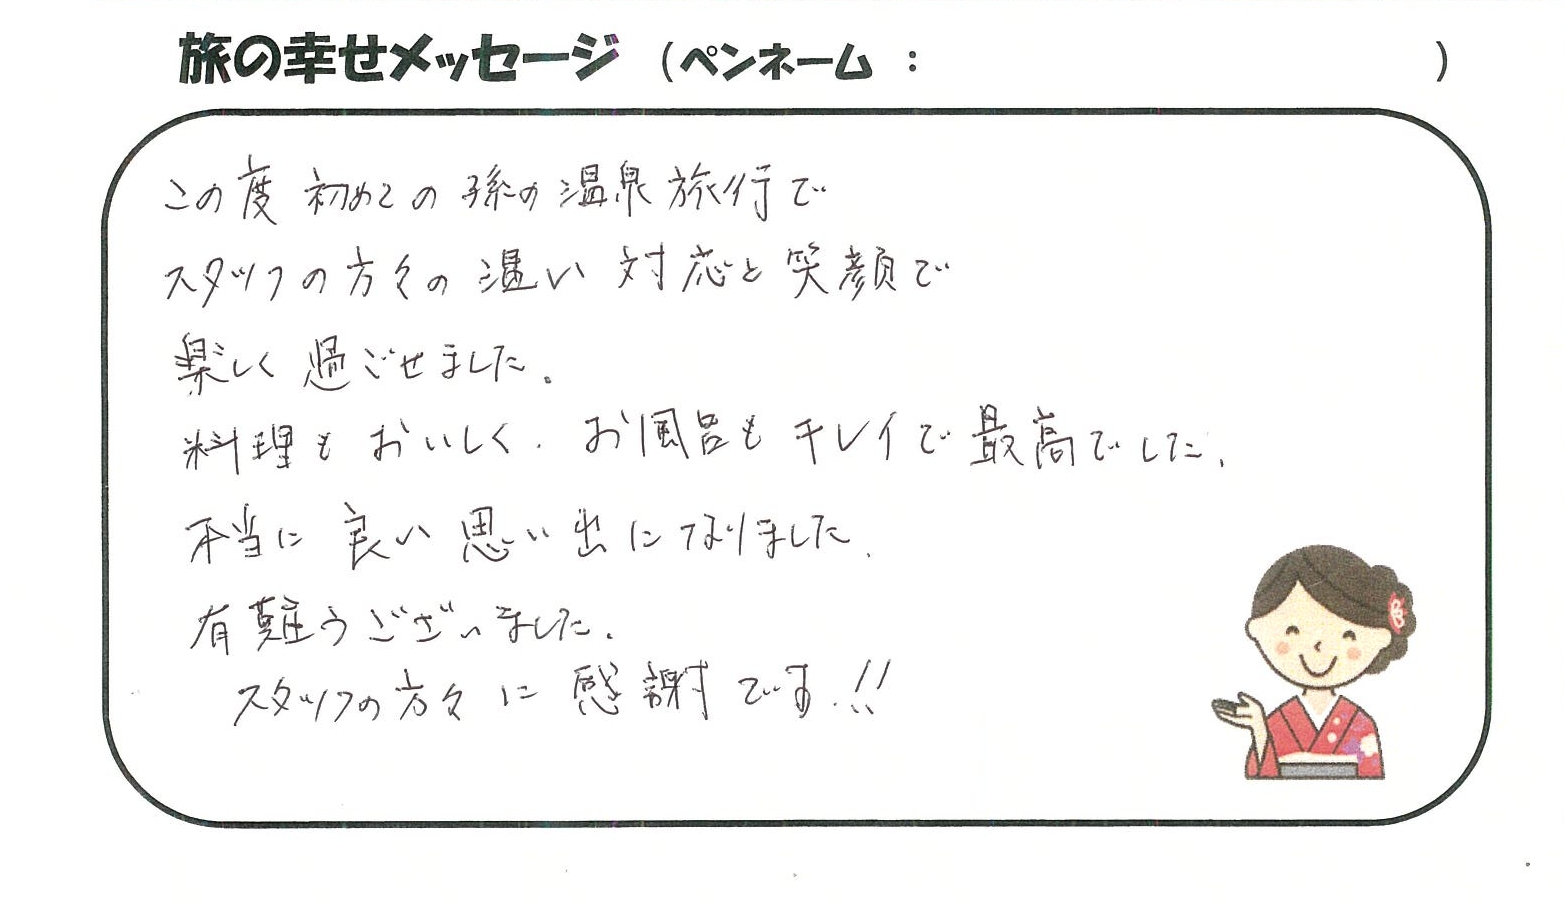 旅の幸せメッセージ (ペンネーム : )
この度 初めての 孫の 温泉 旅行で
スタッフの方々の 温い 対応と 笑顔で
楽しく 過ごせました。
料理も おいしく、お風呂も キレイで 最高でした。
本当に 良い 思い出に なりました。
有難うございました。
スタッフの方々に 感謝です.!!